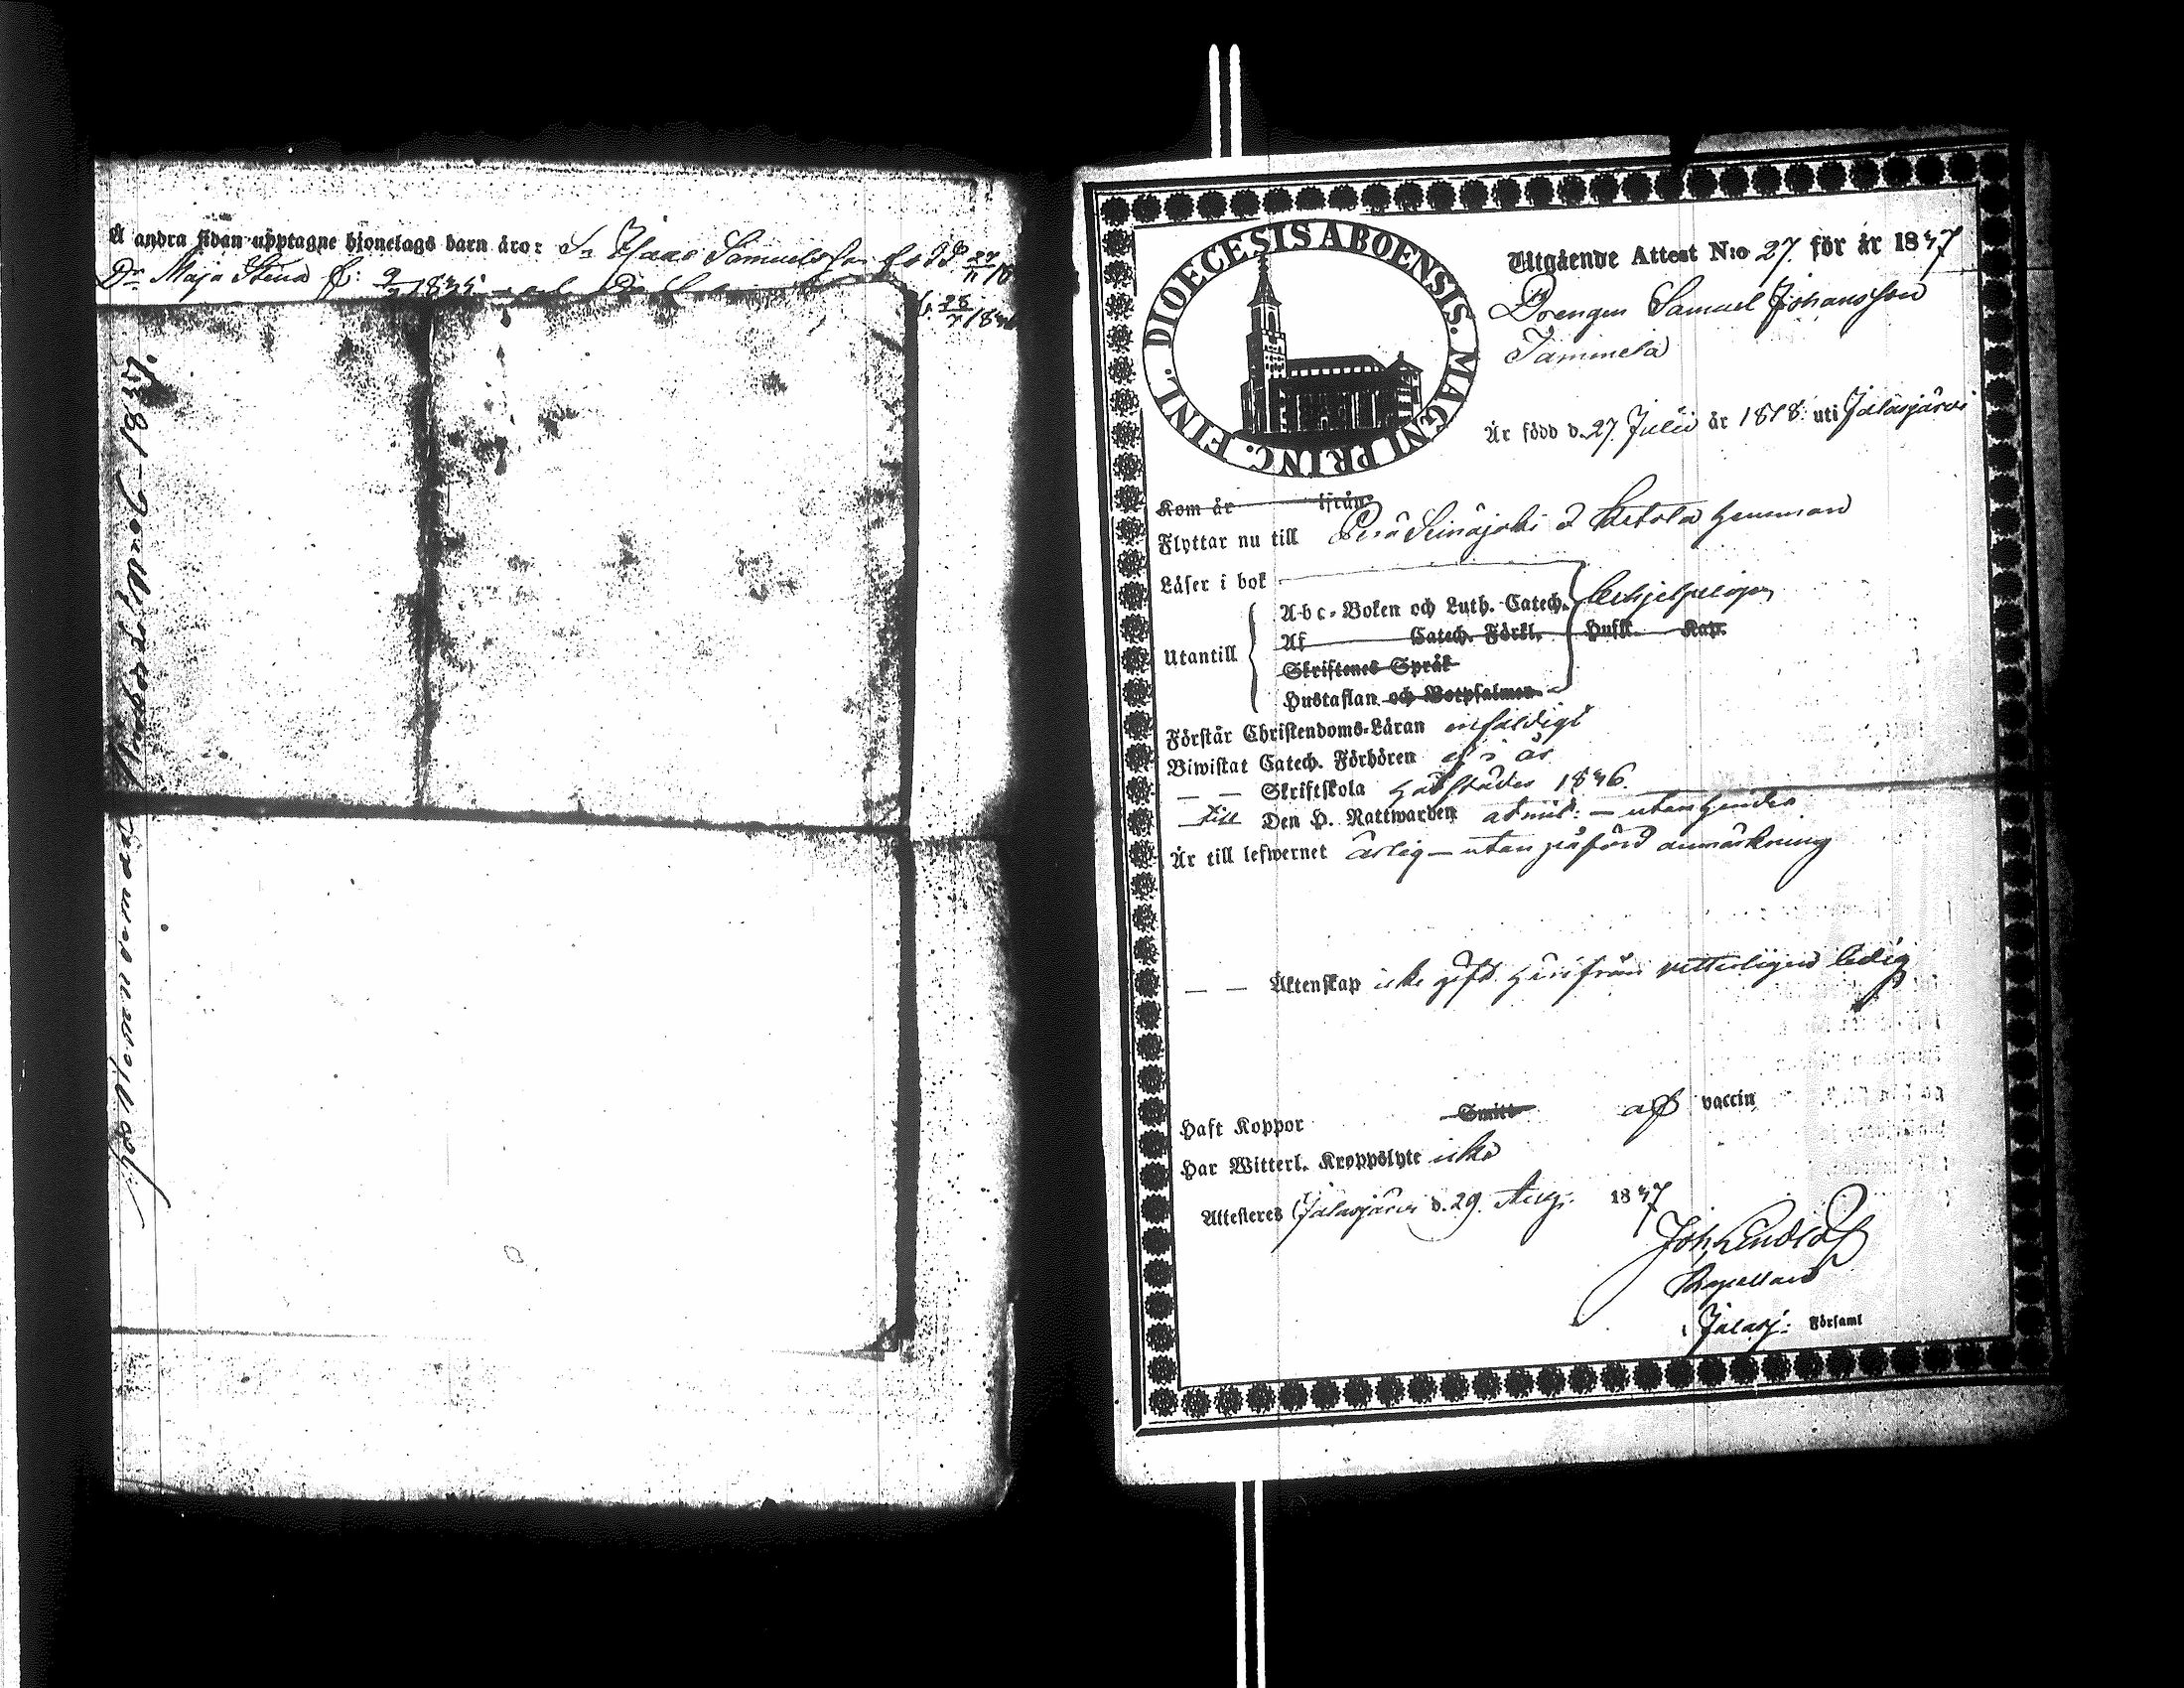 Å andra sidan upptagne hjonelags barn äro: Sn Isaac Samuelsson född 27/11 18
Dr Maja Stina f: 9/2 1835
f. 28/7 18
DIOECESIS ABOENSIS. MAGNI PRINC. FINL.
Utgående Attest N:o 27 för år 1847
Drengen Samuel Johansson
Tammela
Är född d. 27 Julii år 1818 uti Jalasjärvi
Kom år ifrån
Flyttar nu till Perä Seinäjoki å Ketola hemman
Läser i bok
Utantill
A-b-c-Boken och Luth. Catech. behjelpeligen
Af Catech. Förkl. Huskl. Kap.
Skriftenes Språk
Hustaflan och Botpsalmen
Förstår Christendoms-Läran enfaldigt
Biwistat Catech. Förhören i år
— — Skriftskola härstädes 1846.
till Den H. Nattwarden admit: — utan hinder
Är till lefwernet ärlig — utan påförd anmärkning
— — Äktenskap icke gift härifrån vetterligen ledig
Haft Koppor Smitt af vaccin
Har Witterl. Kroppslyte icke
Attesteres Jalasjärvi d. 29. Aug. 1847
Joh.
Kapellan
i Jalasj: Församl